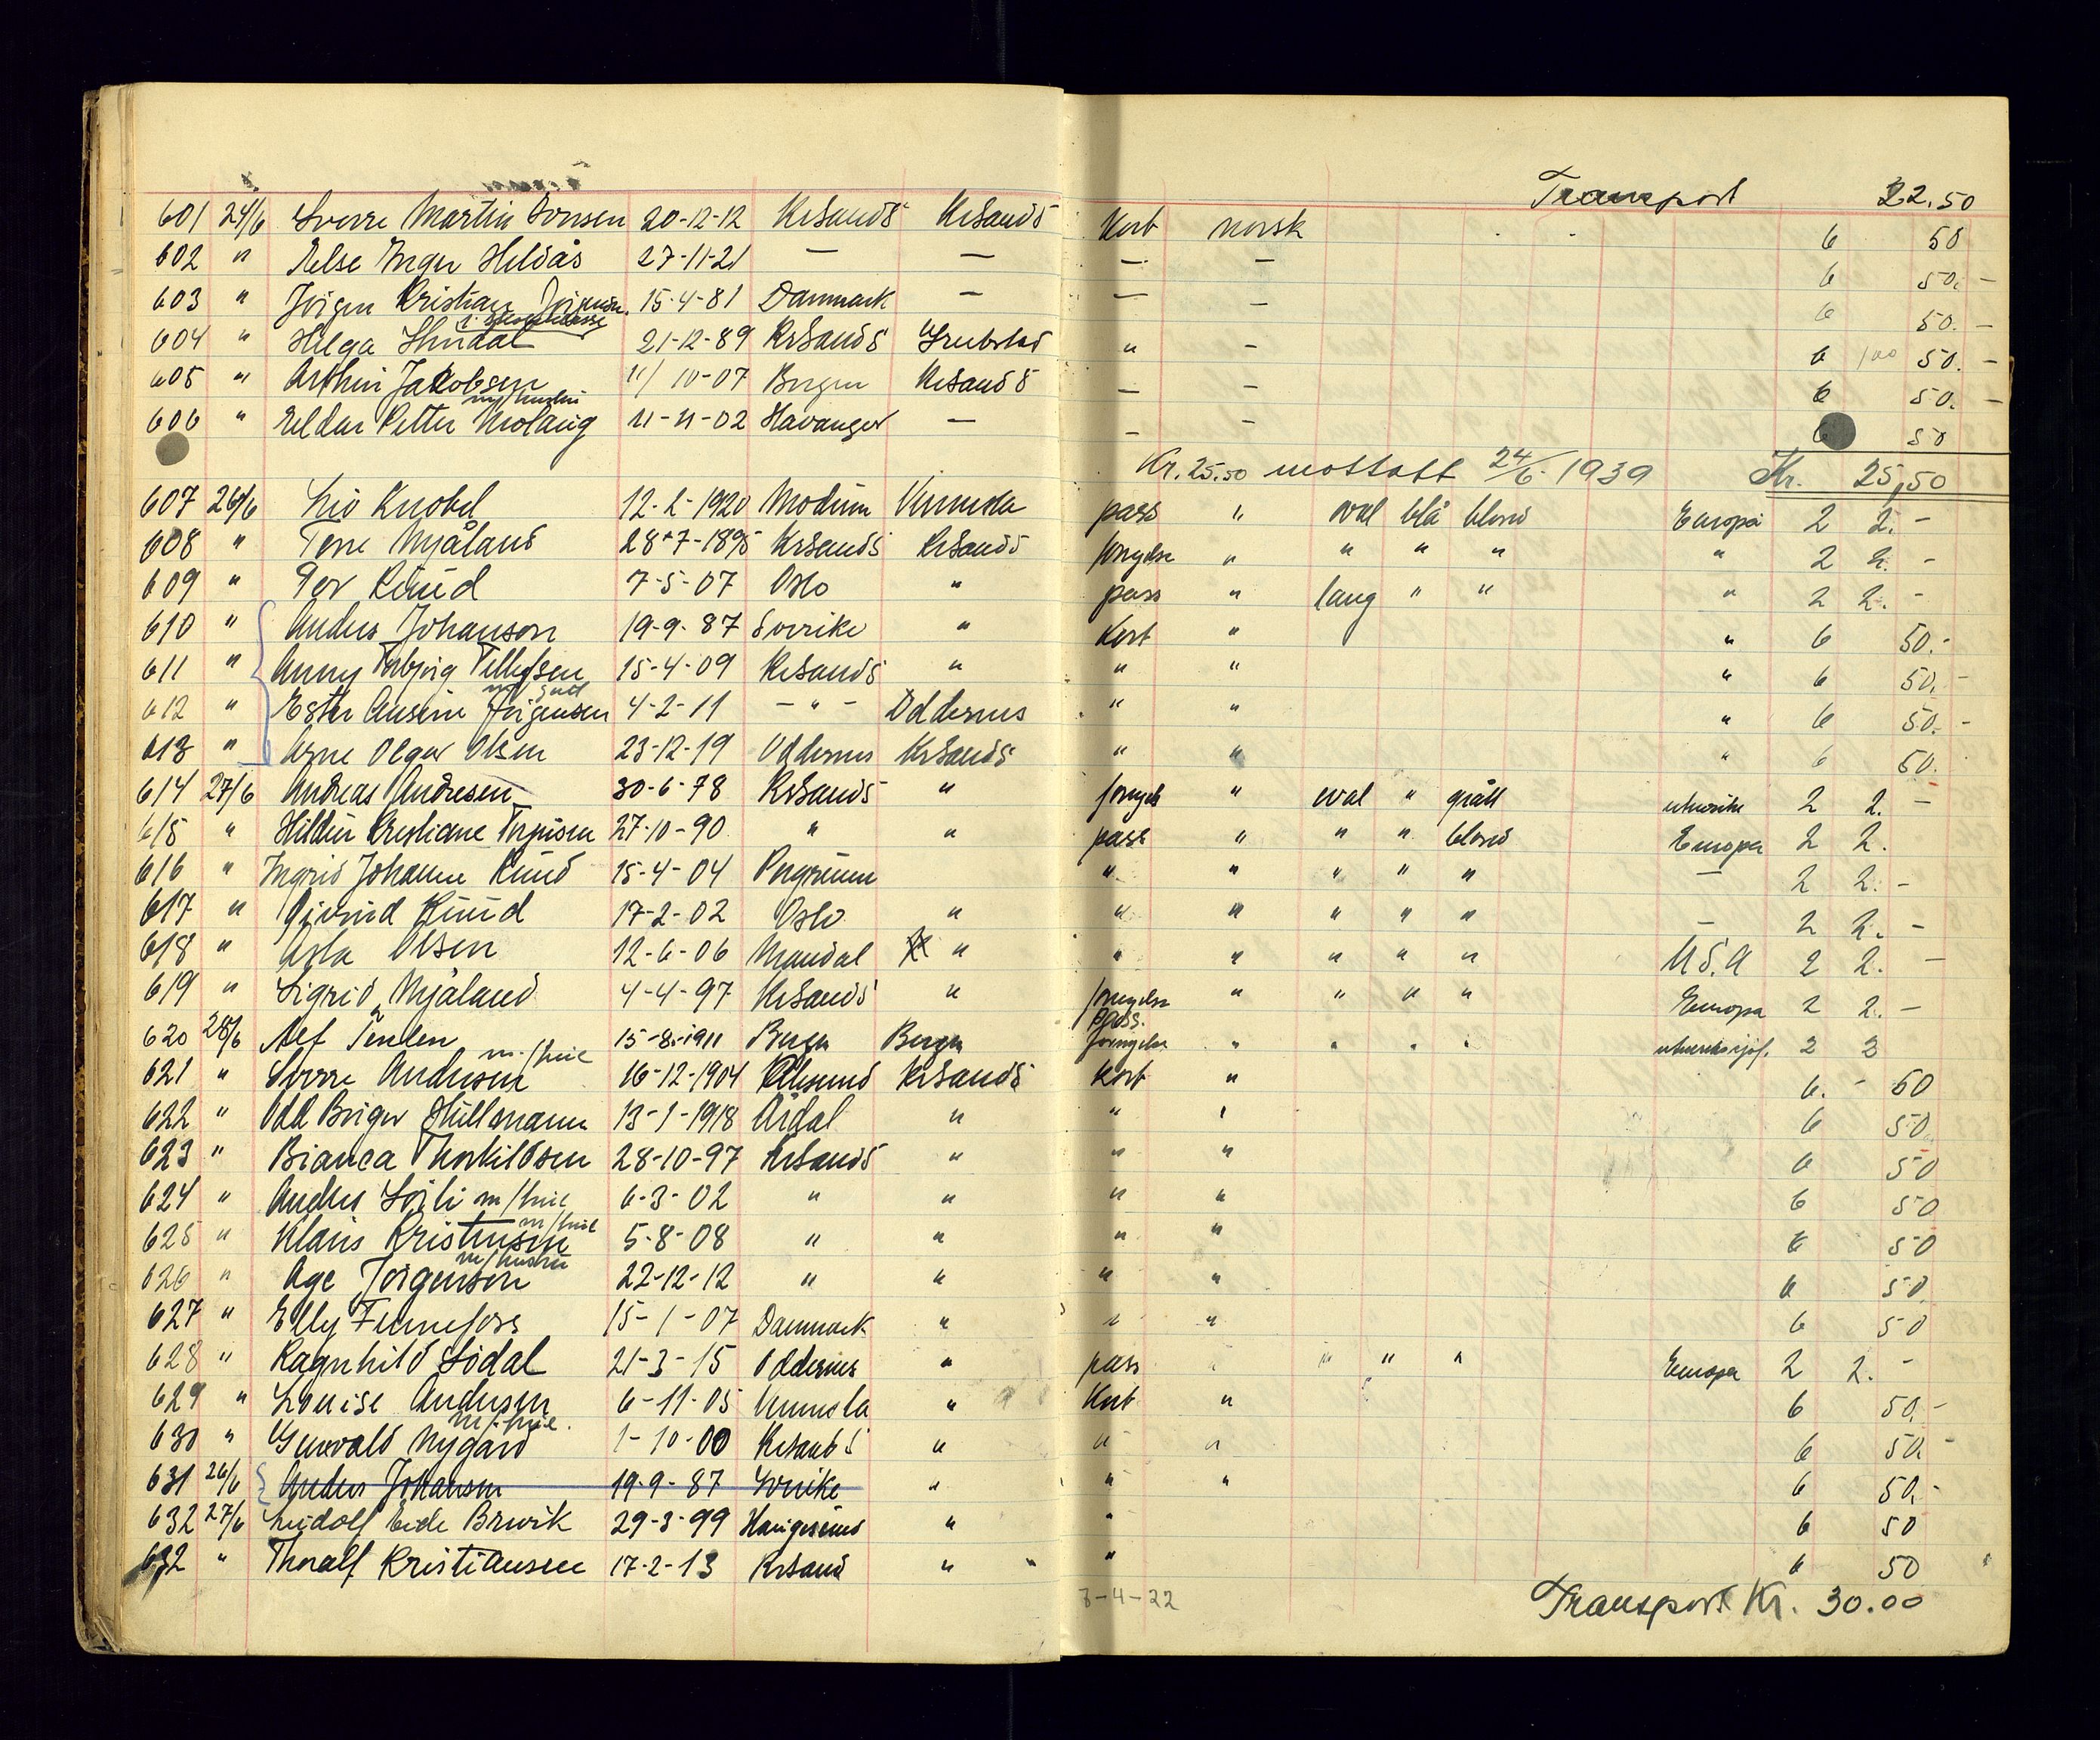 Transport 22.50
601 24/6 Sverre Martin Jonsen 20-12-12 KrSands KrSands Kort norsk 6 50
602 " Else Inger Hildås 27-11-21 — — — — 6 50.-
603 " Jörgen Kristian 15-4-81 Danmark — — — 6 50.-
604 " Helga 21-12-89 KrSands " — 6 100 50.-
605 " Arthur Jakobsen 11/10-07 Bergen KrSands — — 6 50.-
m/hustru
606 " Petter 11-11-02 — — — 6 50
Kr. 25.50 mottatt 24/6-1939 Kr. 25,50
607 26/6 Knobel 12-2-1920 Modum Vennesla pass " oval blå blond Europa 2 2.-
608 " Nyåland 28-7-1895 KrSands KrSands fornyelse " " " " " 2 2.-
609 " Per Ruud 7-5-07 Oslo " pass " lang " " " 2 2.-
610 " Anders Johanson 19-9-87 Sverike " Kort " " 6 50.-
611 " Anny Torbjörg Tellefsen 15-4-09 KrSands " " " " 6 50.-
612 " Ester Jörgensen 4-2-11 - " - Oddernes " " " 6 50.-
613 " Arne Olger Olsen 23-12-19 Oddernes KrSands " " " 6 50.
614 27/6 Andreas Andresen 30-6-78 KrSands " fornyels " oval " grått utenriks 2 2.-
615 " Kristiane 27-10-90 " " pass " " " blond Europa 2 2.
616 " Ingrid Johanne Ruud 15-4-04 Porsgrunn " " " " " — 2 2.-
617 " Öivind Ruud 17-2-02 Oslo " " " " " " — 2 2.-
618 " Asta Olsen 12-6-06 Mandal " " " " " " U.S.A 2 2.-
619 " Sigrid Nyåland 4-4-97 KrSands " fornyelse " " " " Europa 2 2.-
pass.
620 28/6 Alf 15-8-1911 Bergen Bergen fornyelse " " " " utenrikssjöf. 2 2
m/frue
621 " Sverre Andresen 16-12-1904 KrSands Kort " 6.- 50
622 " Odd Birger Hüllmann 13-1-1918 Årdal " " " 6 50
623 " Bianca Thorkildsen 28-10-97 KrSands " " " 6 50
624 " Anders m/frue 6-3-02 " " " " 6 50
m/frue
625 " Klaus Kristensen 5-8-08 " " " " 6 50
m/hustru
626 " Åge Jörgenson 22-12-12 " " " " 6 50
627 " Elly Finnefoss 15-1-07 Danmark " " " 6 50
628 " Ragnhild Lödal 21-3-15 Oddernes " pass " " " " Europa 2 2.-
629 " Louise Andersen 6-11-05 Vennesla " Kort " 6 50.-
m/frue.
630 " Gunvald Nygård 1-10-00 KrSands " " " 6 50.-
631 26/6 Anders Johansen 19-9-87 Sverike " " " 6 50.-
632 27/6 Ludolf Eide Brevik 29-3-99 Haugesund " " 6 50
632 " Thoralf Kristiansen 17-2-13 KrSand " " 6 50
3-4-22
Transport Kr. 30.00